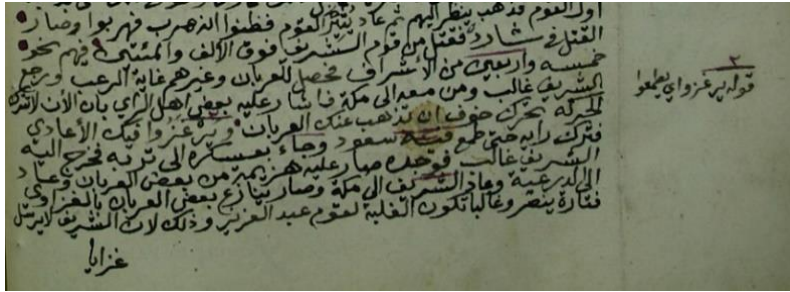 اول القوم فذهب ينظر اليهم ثم عاد القوم فظنوا انه هرب فهربوا وصار
القتل في شارد فقتل من قوم الشريف فوق الألف والمئتين فهم نحو
خمسه واربعين من الأشراف فحصل للعربان وغيرهم غاية الرعب ورجع
الشريف غالب ومن معه الى مكة فاشار عليه بعض اهل الراي بان الأن لا تترك
الحركه بحرك خوف ان تذهب عنك العربان ويرغزوا فيك الأعادي
فترك رايه حتى طمع فيه سعود وجاء بعسكره الى تربه فخرج اليه
الشريف غالب فوجده صار عليه هزيمة من بعض العربان وعاد
الى الدرعية وعاد الشريف الى مكة وصار ينازع بعض العربان بالغزاوي
فتارة ينصر وغالبا تكون الغلبة لقوم عبد العزيز وذلك لان الشريف لا يرسل
غزايا
٢
قوله يرغزوا اي يطمعوا